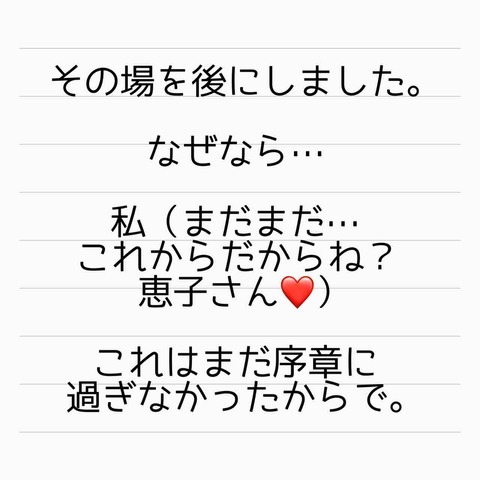 その場を後にしました。
なぜなら…
私（まだまだ…
これからだからね？
恵子さん❤️）
これはまだ序章に
過ぎなかったからで。